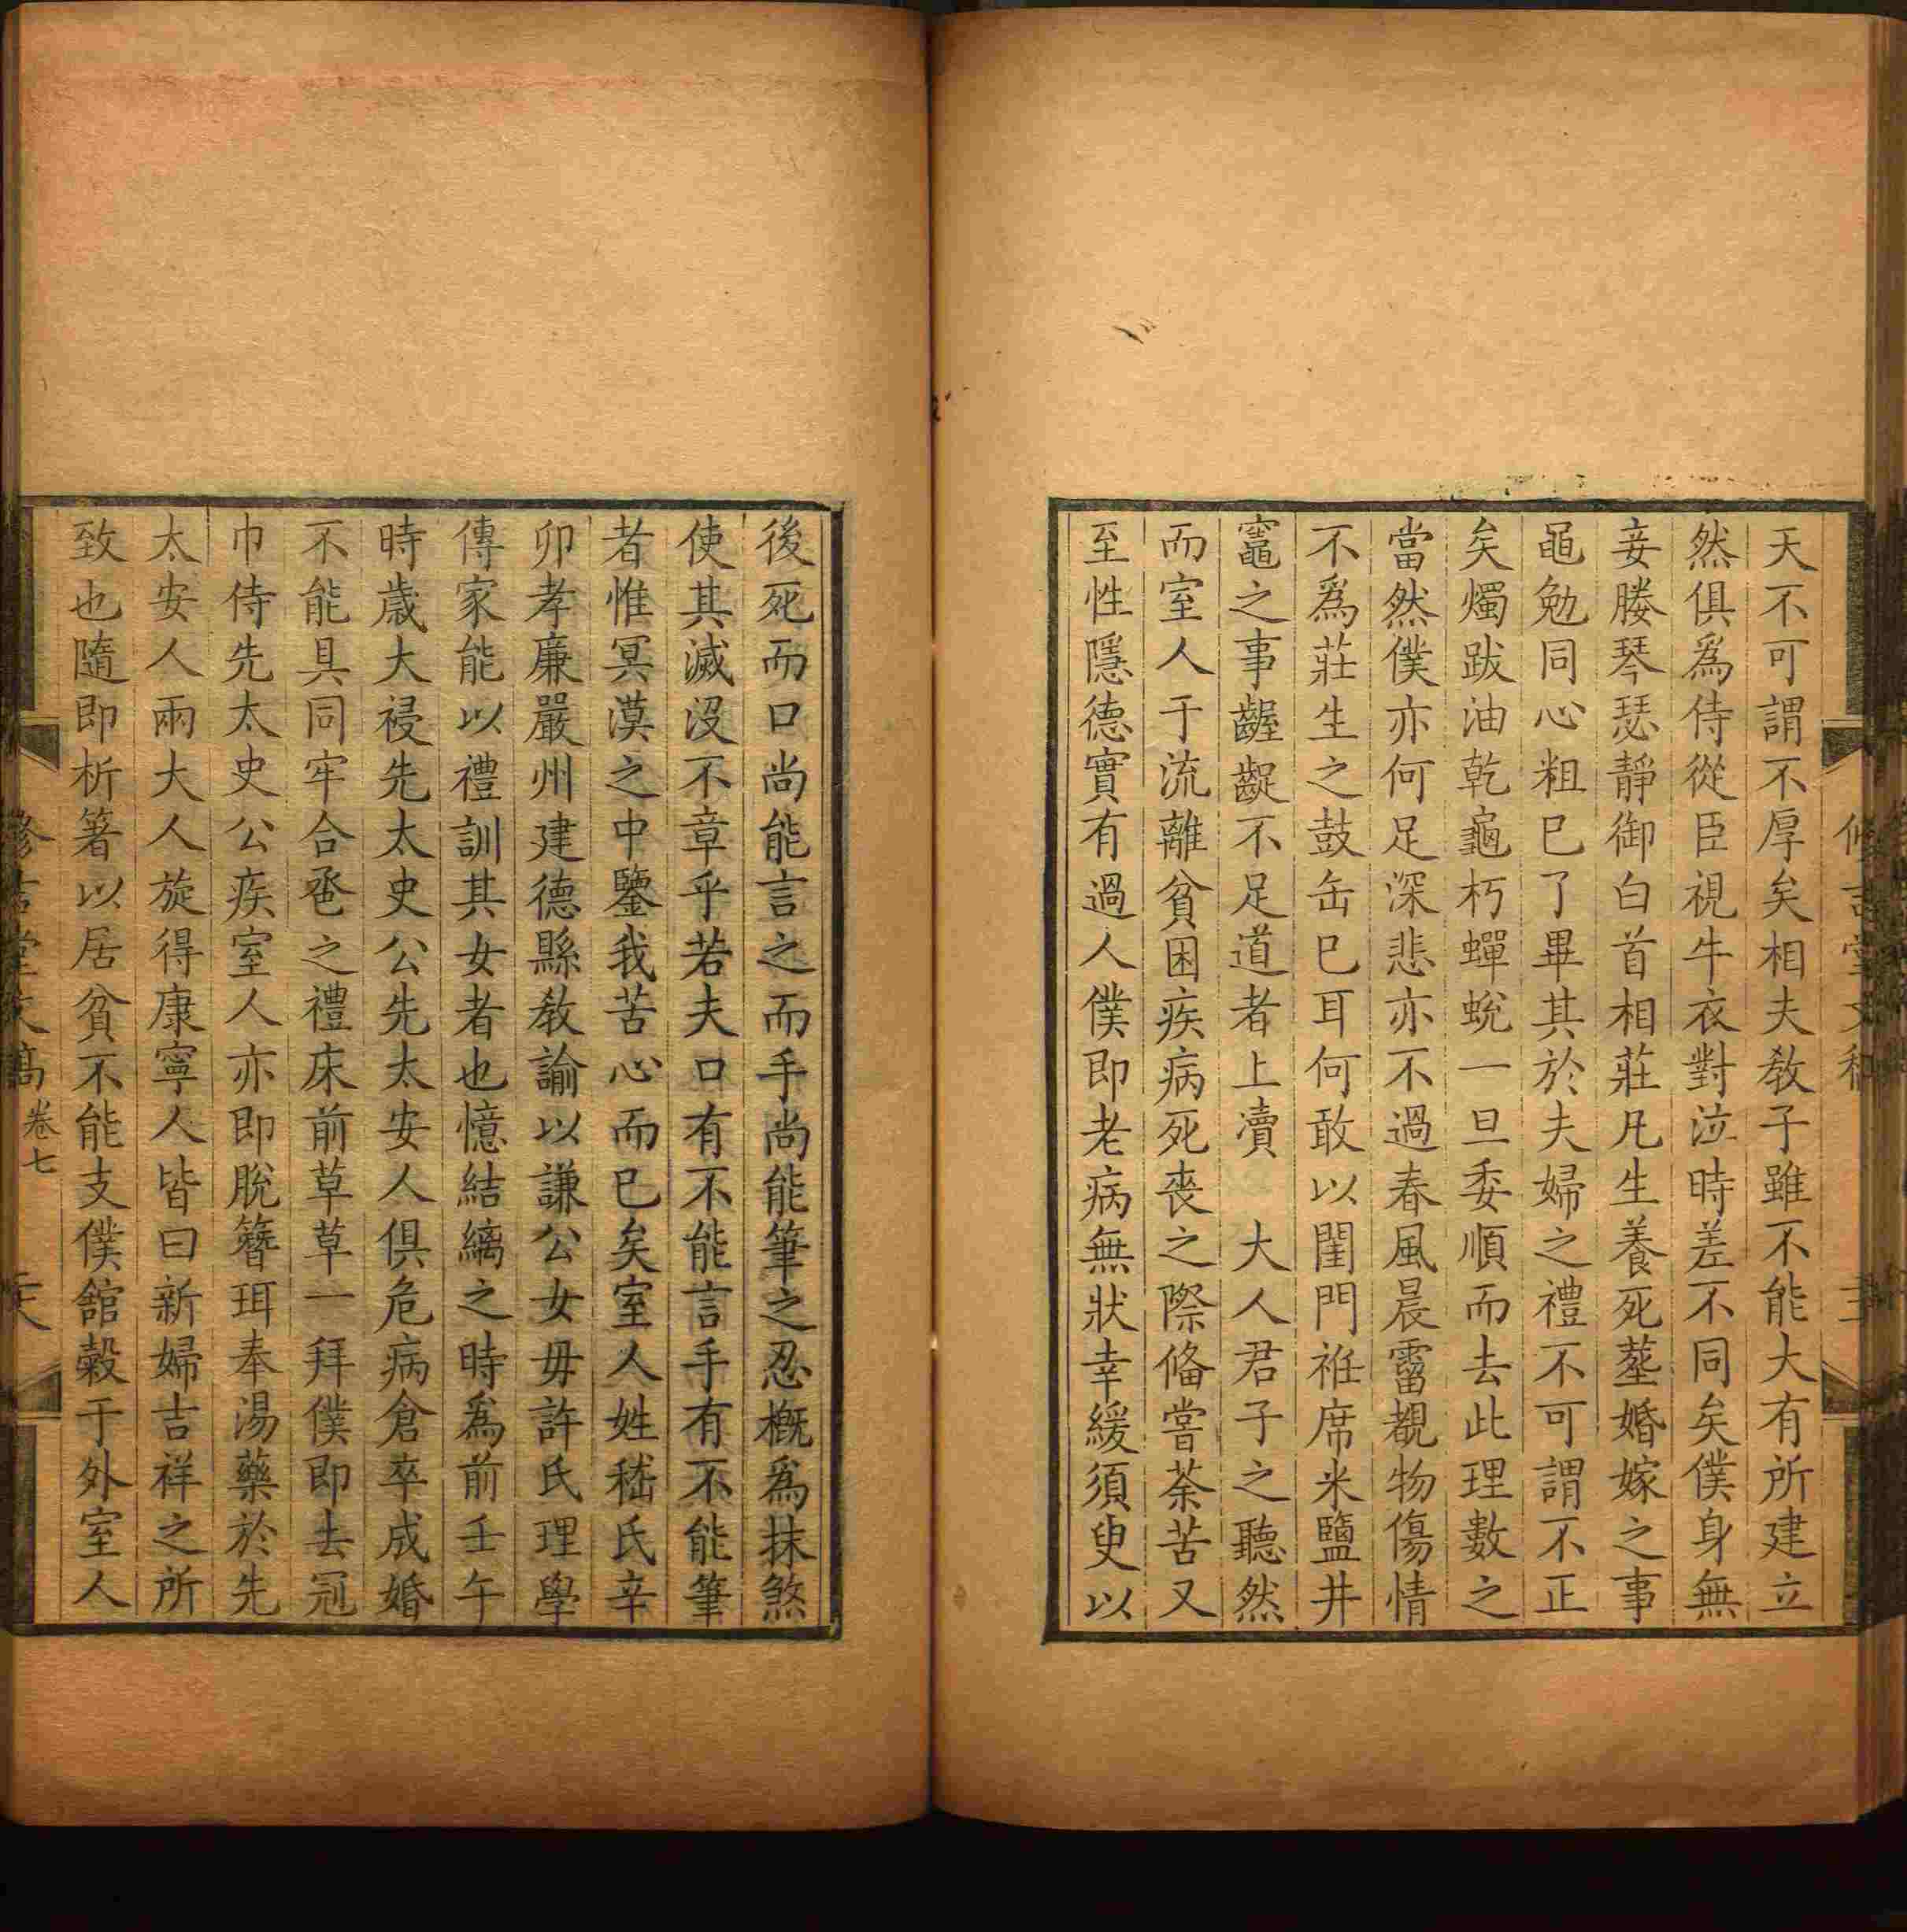 天不可謂不厚矣相夫敎子雖不能大有所建立
然俱爲侍從臣視牛衣對泣時差不同矣僕身無
妾媵琴瑟靜御白首相莊凡生養死塟婚嫁之事
黽勉同心粗巳了畢其於夫婦之禮不可謂不正
矣燭跋油乾龜朽蟬蛻一旦委順而去此理數之
當然僕亦何足深悲亦不過春風晨霤覩物傷情
不爲莊生之鼓缶巳耳何敢以閨門袵席米鹽井
竈之事齷齪不足道者上瀆　大人君子之聽然
而室人于流離貧困疾病死喪之際俻嘗荼苦又
至性隱德實有過人僕即老病無狀幸緩須臾以
後死而口尚能言之而手尚能筆之忍槪爲抹煞
使其滅沒不章乎若夫口有不能言手有不能筆
者惟冥漠之中鑒我苦心而巳矣室人姓嵇氏辛
卯孝廉嚴州建德縣敎諭以謙公女毋許氏理學
傳家能以禮訓其女者也憶結縭之時爲前壬午
時歲大祲先太史公先太安人俱危病倉卒成婚
不能具同牢合巹之禮床前草草一拜僕即去冠
巾侍先太史公疾室人亦即脫簪珥奉湯藥於先
太安人兩大人旋得康寧人皆曰新婦吉祥之所
致也隨即析箸以居貧不能支僕舘榖于外室人
卷七